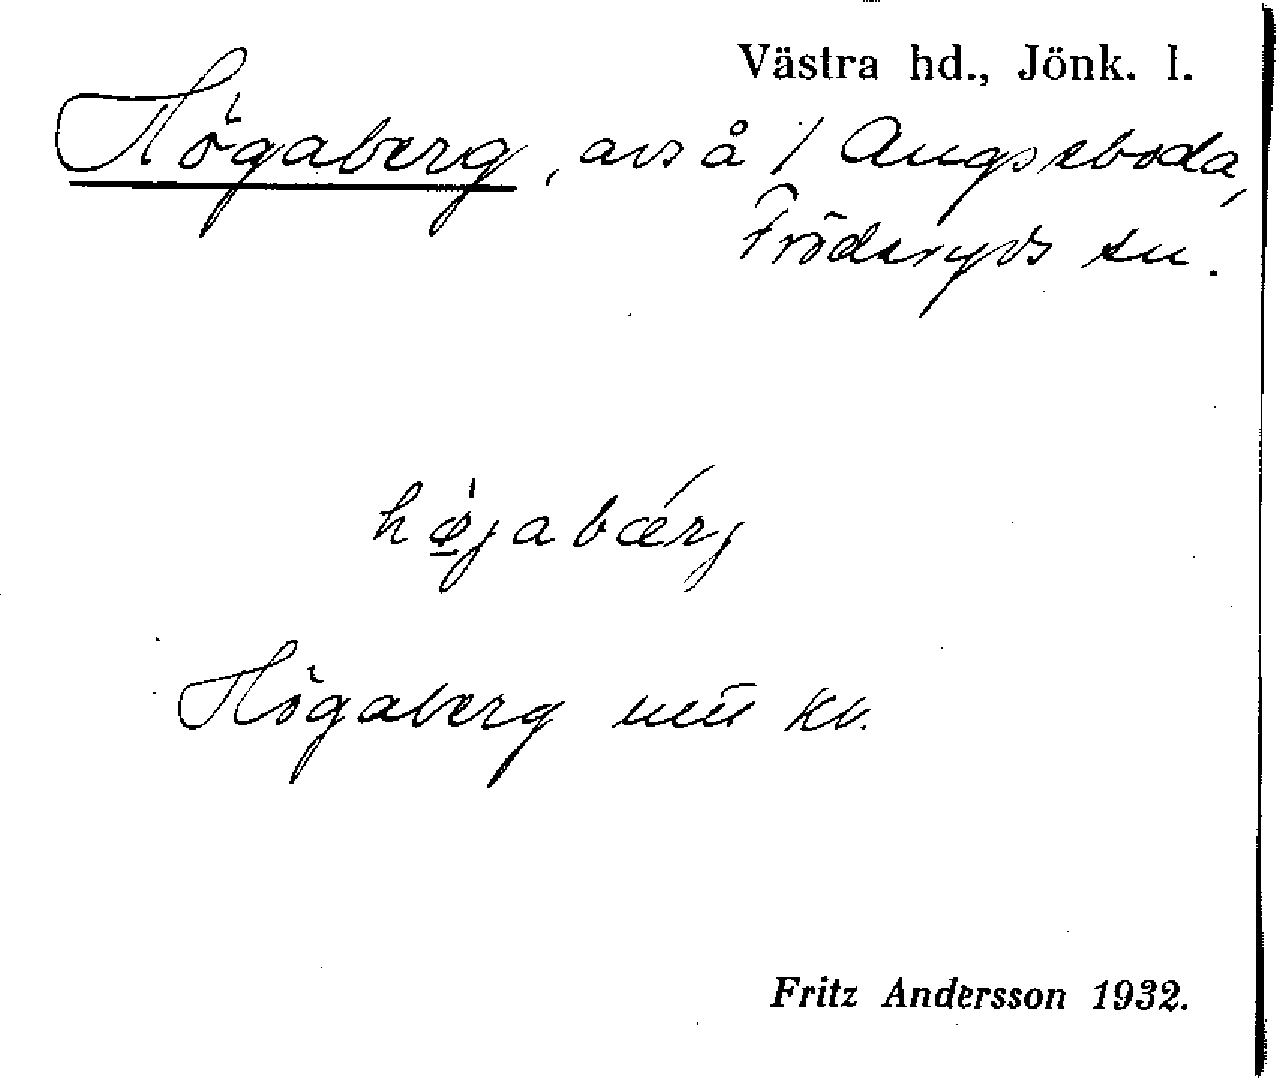 Västra hd., Jönk. l.
Högaberg, avs å / Augseboda,
Fröderyds sn.
hø̱jabǽrj
Högaberg mtl kv.
Fritz Andersson 1932.